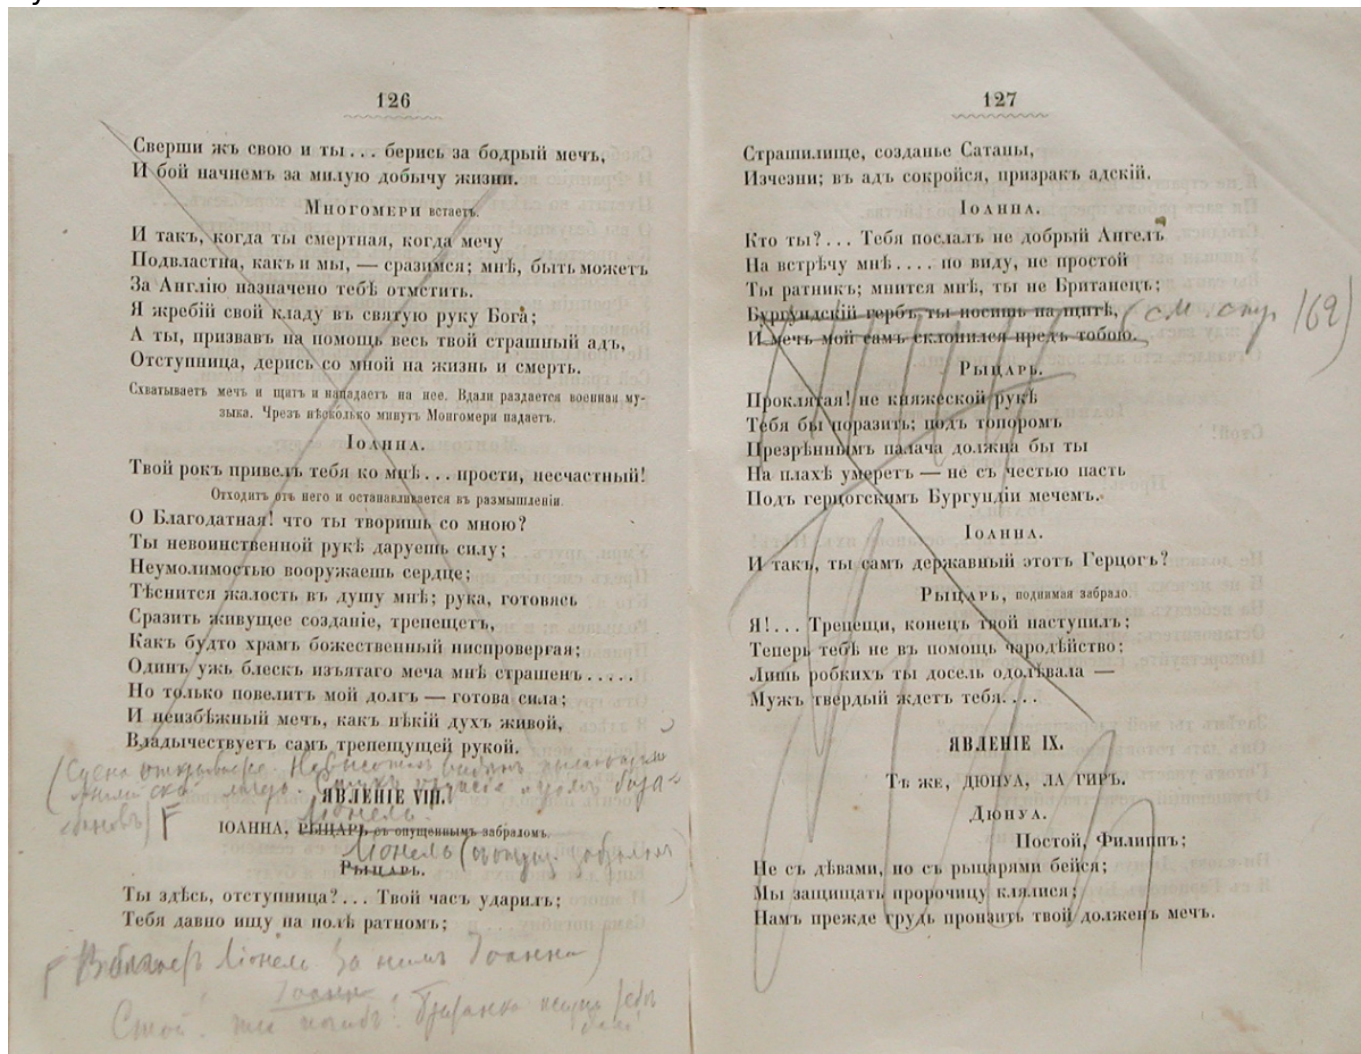 126
Сверши жъ свою и ты... берись за бодрый мечъ,
И бой начнемъ за милую добычу жизни.
Многомери встаетъ.
И такъ, когда ты смертная, когда мечу
Подвластна, какъ и мы, — сразимся; мнѣ, быть можетъ
За Англію назначено тебѣ отмстить.
Я жребій свой кладу въ святую руку Бога;
А ты, призвавъ на помощь весь твой страшный адъ,
Отступница, дерись со мной на жизнь и смерть.
Схватываетъ мечъ и щитъ и нападаетъ на нее. Вдали раздается военная му-
зыка. Чрезъ нѣсколько минутъ Монгомери падаетъ.
Іоанна.
Твой рокъ привелъ тебя ко мнѣ... прости, несчастный!
Отходитъ отъ него и останавливается въ размышленіи.
О Благодатная! что ты творишь со мною?
Ты невоинственной рукѣ даруешь силу;
Неумолимостью вооружаешь сердце;
Тѣснится жалость въ душу мнѣ; рука, готовясь
Сразить живущее созданіе, трепещетъ,
Какъ будто храмъ божественный ниспровергая;
Одинъ ужь блескъ изъятаго меча мнѣ страшенъ.....
Но только повелитъ мой долгъ — готова сила;
И неизбѣжный мечъ, какъ нѣкій духъ живой,
Владычествуетъ самъ трепещущей рукой.
(Сцена
ЯВЛЕНІЕ VIII.
Ліонель.
ІОАННА, РЫЦАРЬ съ опущеннымъ забраломъ.
Ліонель
Рыцарь.
Ты здѣсь, отступница?... Твой часъ ударилъ;
Тебя давно ищу на полѣ ратномъ;
Ліонель за нимъ Іоанна)
Іоанна
Стой!
127
Страшилище, созданье Сатаны,
Изчезни; въ адъ сокройся, призракъ адскій.
Іоанна.
Кто ты?... Тебя послалъ не добрый Ангелъ
На встрѣчу мнѣ.... по виду, не простой
Ты ратникъ; мнится мнѣ, ты не Британецъ;
Бургундскій гербъ ты носишь на щитѣ, (см. стр. 169)
И мечъ мой самъ склонился предъ тобою.
Рыцарь.
Проклятая! не княжеской рукѣ
Тебя бы поразить; подъ топоромъ
Презрѣннымъ палача должна бы ты
На плахѣ умереть — не съ честью пасть
Подъ герцогскимъ Бургундіи мечемъ.
Іоанна.
И такъ, ты самъ державный этотъ Герцогъ?
Рыцарь, поднимая забрало.
Я!... Трепещи, конецъ твой наступилъ;
Теперь тебѣ не въ помощь чародѣйство;
Лишь робкихъ ты досель одолѣвала —
Мужъ твердый ждетъ тебя....
ЯВЛЕНІЕ IX.
Тѣ же, ДЮНУА, ЛА ГИРЪ.
Дюнуа.
Постой, Филиппъ;
Не съ дѣвами, но съ рыцарями бейся;
Мы защищать пророчицу клялися;
Намъ прежде грудь пронзить твой долженъ мечъ.